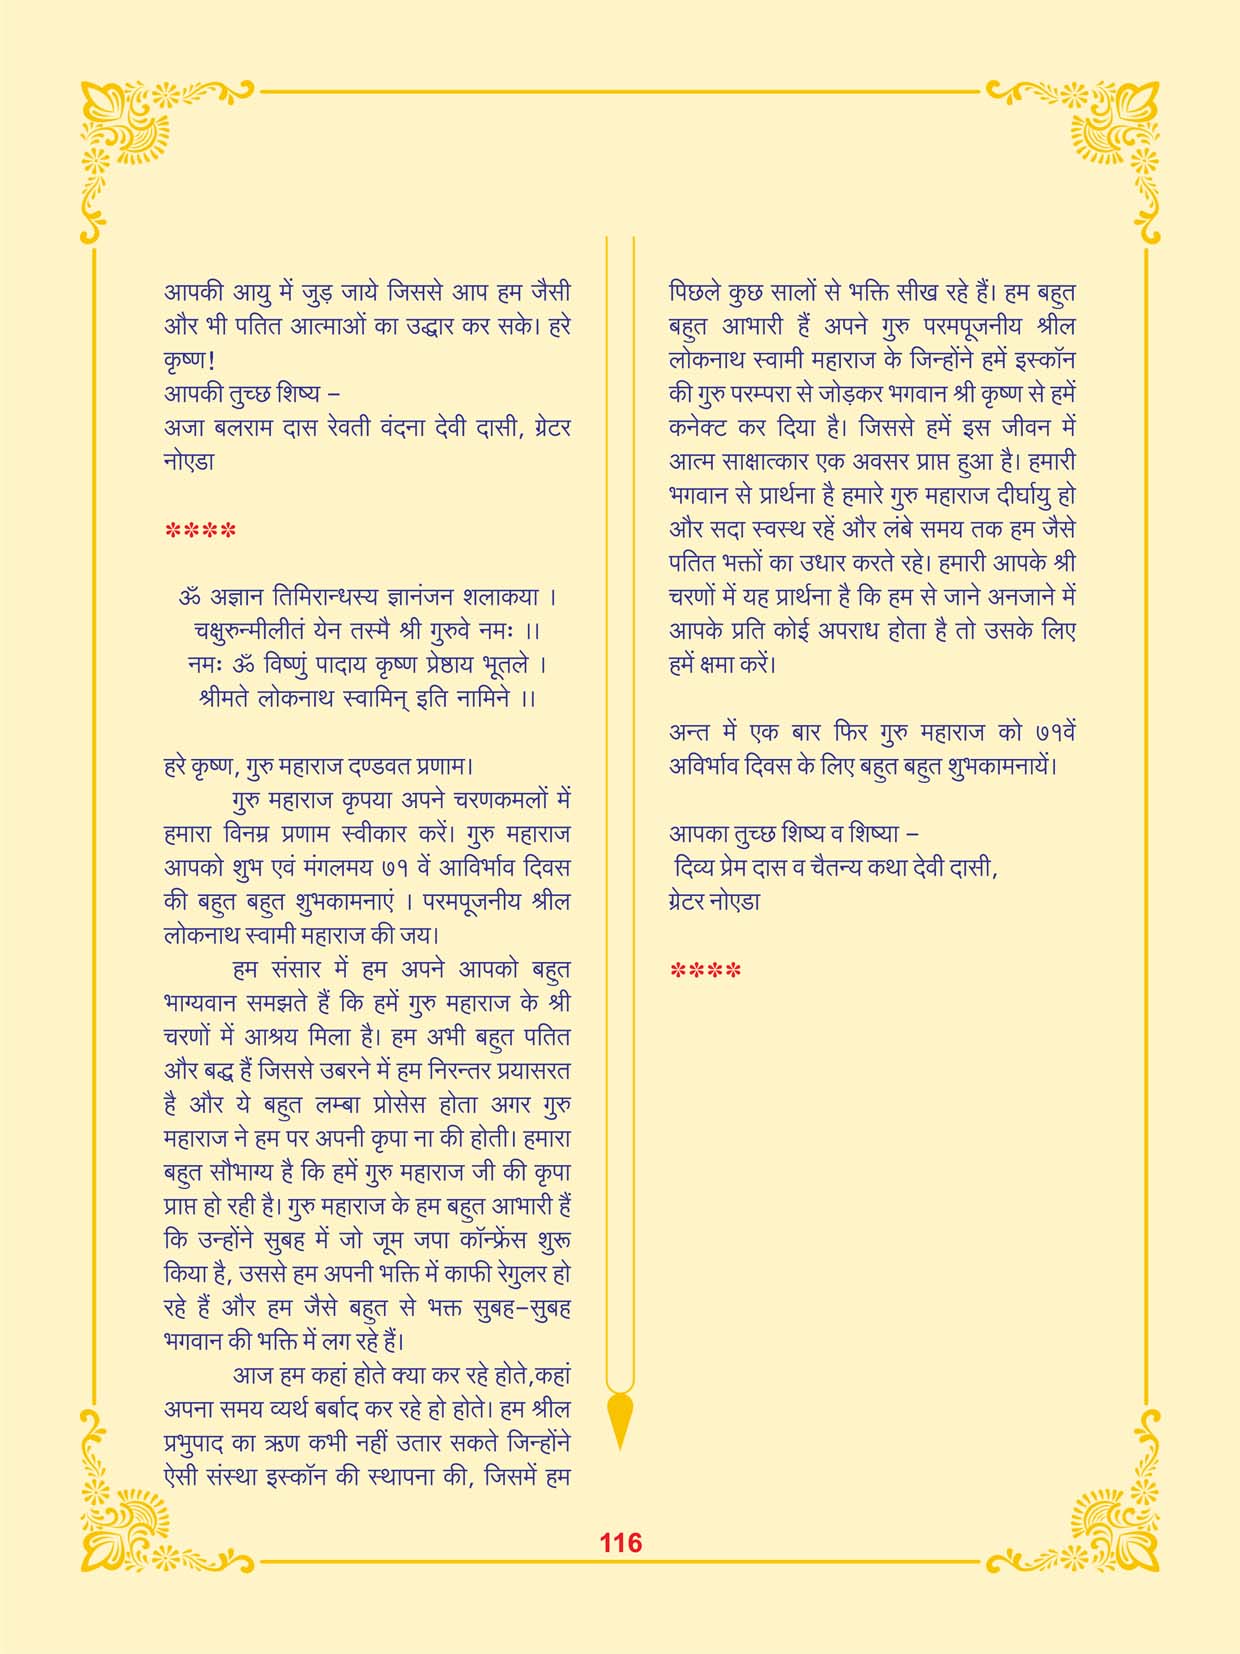 आपकी आयु में जुड़ जाये जिससे आप हम जैसी
और भी पतित आत्माओं का उद्धार कर सके। हरे
कृष्ण!
आपकी तुच्छ शिष्य –
अजा बलराम दास रेवती वंदना देवी दासी, ग्रेटर
नोएडा
****
ॐ अज्ञान तिमिरान्धस्य ज्ञानंजन शलाकया ।
चक्षुरुन्मीलीतं येन तस्मै श्री गुरुवे नमः ।।
नमः ॐ विष्णुं पादाय कृष्ण प्रेष्ठाय भूतले ।
श्रीमते लोकनाथ स्वामिन् इति नामिने ।।
हरे कृष्ण, गुरु महाराज दण्डवत प्रणाम।
गुरु महाराज कृपया अपने चरणकमलों में
हमारा विनम्र प्रणाम स्वीकार करें। गुरु महाराज
आपको शुभ एवं मंगलमय ७१ वें आविर्भाव दिवस
की बहुत बहुत शुभकामनाएं । परमपूजनीय श्रील
लोकनाथ स्वामी महाराज की जय।
हम संसार में हम अपने आपको बहुत
भाग्यवान समझते हैं कि हमें गुरु महाराज के श्री
चरणों में आश्रय मिला है। हम अभी बहुत पतित
और बद्ध हैं जिससे उबरने में हम निरन्तर प्रयासरत
है और ये बहुत लम्बा प्रोसेस होता अगर गुरु
महाराज ने हम पर अपनी कृपा ना की होती। हमारा
बहुत सौभाग्य है कि हमें गुरु महाराज जी की कृपा
प्राप्त हो रही है। गुरु महाराज के हम बहुत आभारी हैं
कि उन्होंने सुबह में जो जूम जपा कॉन्फ्रेंस शुरू
किया है, उससे हम अपनी भक्ति में काफी रेगुलर हो
रहे हैं और हम जैसे बहुत से भक्त सुबह–सुबह
भगवान की भक्ति में लग रहे हैं।
आज हम कहां होते क्या कर रहे होते,कहां
अपना समय व्यर्थ बर्बाद कर रहे हो होते। हम श्रील
प्रभुपाद का ऋण कभी नहीं उतार सकते जिन्होंने
ऐसी संस्था इस्कॉन की स्थापना की, जिसमें हम
पिछले कुछ सालों से भक्ति सीख रहे हैं। हम बहुत
बहुत आभारी हैं अपने गुरु परमपूजनीय श्रील
लोकनाथ स्वामी महाराज के जिन्होंने हमें इस्कॉन
की गुरु परम्परा से जोड़कर भगवान श्री कृष्ण से हमें
कनेक्ट कर दिया है। जिससे हमें इस जीवन में
आत्म साक्षात्कार एक अवसर प्राप्त हुआ है। हमारी
भगवान से प्रार्थना है हमारे गुरु महाराज दीर्घायु हो
और सदा स्वस्थ रहें और लंबे समय तक हम जैसे
पतित भक्तों का उधार करते रहे। हमारी आपके श्री
चरणों में यह प्रार्थना है कि हम से जाने अनजाने में
आपके प्रति कोई अपराध होता है तो उसके लिए
हमें क्षमा करें।
अन्त में एक बार फिर गुरु महाराज को ७१वें
अविर्भाव दिवस के लिए बहुत बहुत शुभकामनायें।
आपका तुच्छ शिष्य व शिष्या –
दिव्य प्रेम दास व चैतन्य कथा देवी दासी,
ग्रेटर नोएडा
****
116